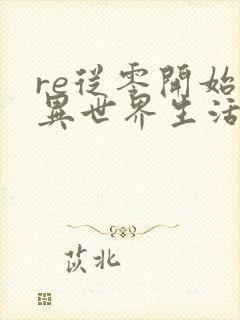 re從零開始
異世界生活
茨北